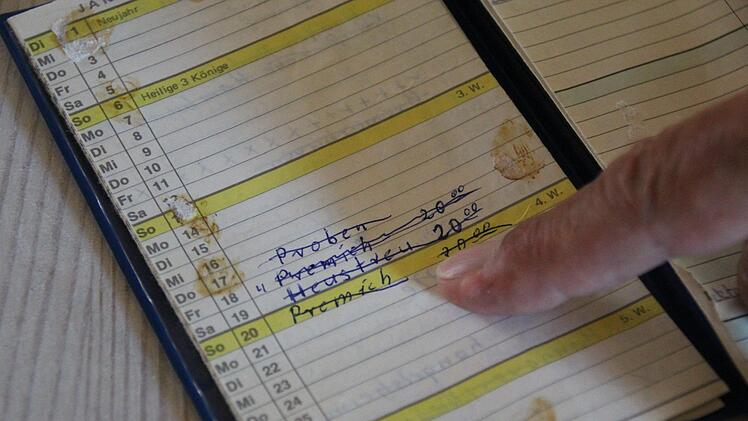 JAN
Di 1 Neujahr
Mi
Do 3
Fr 4
Sa 5
So 6 Heilige 3 Könige
Mo 7
Di 8
Mi 9
Do 10
Fr 11
Sa
3. W.
Mo 14
Di 15
Mi 16 Proben
Do 17 " Premich 20 00
Fr 18 Heustreu 20 00
Sa 19 Premich 20 00
So 20 4. W.
Mo 21
Di 22
Mi 23
Do 24
25
5. W.